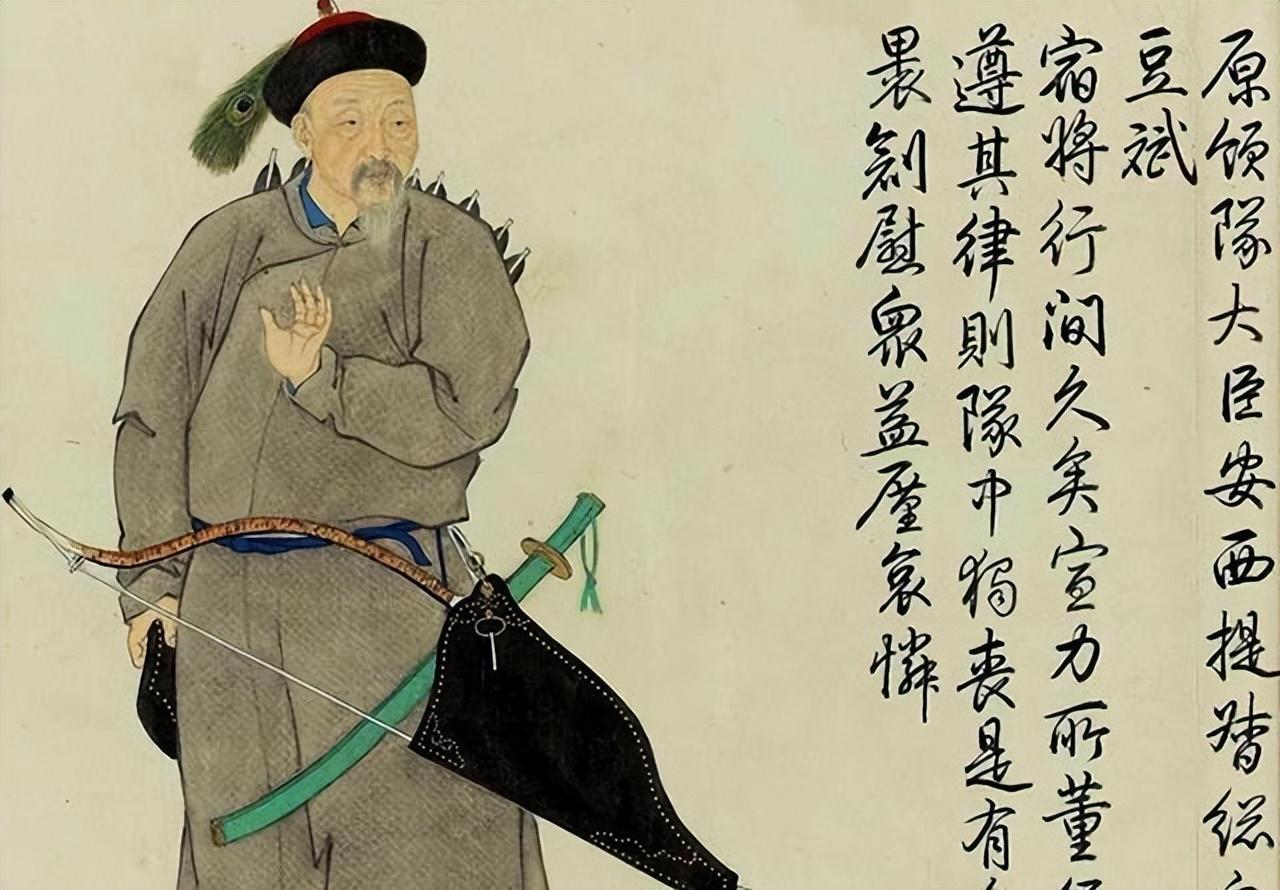 原領隊大臣安西提督総
豆斌
宿將行間久矣宣力所董
遵其律則隊中獨喪是有
裹創慰衆益廑哀憐